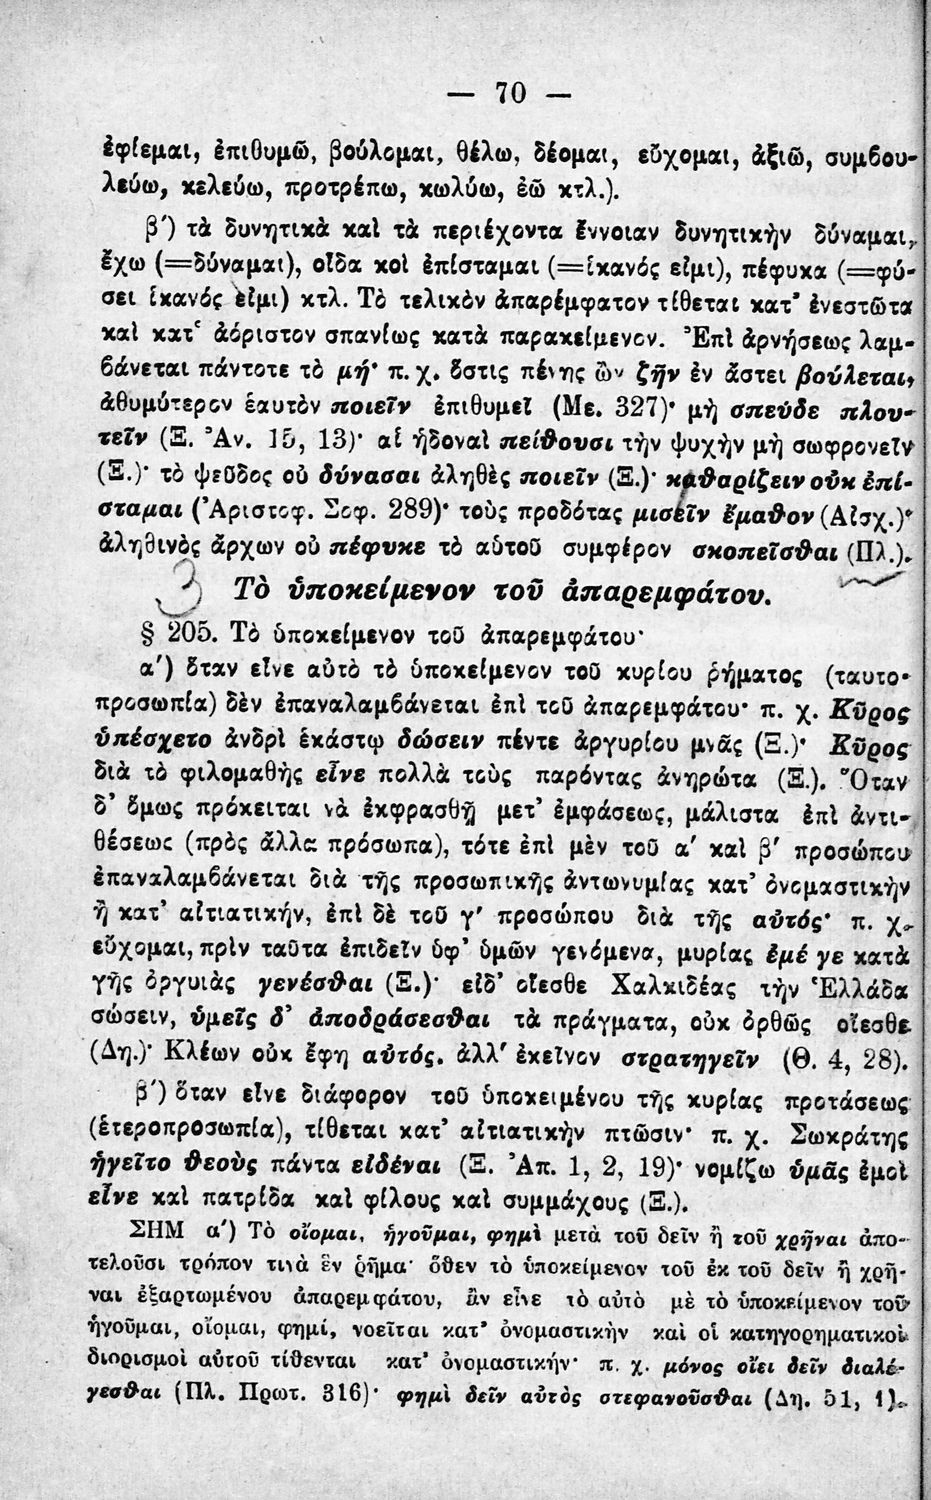 — 70 —
ἐφίεμαι, ἐπιθυμῶ, βούλομαι, θέλω, δέομαι, εὔχομαι, ἀξιῶ, συμβου-
λεύω, κελεύω, προτρέπω, κωλύω, ἐῶ κτλ.).
β΄) τὰ δυνητικὰ καὶ τὰ περιέχοντα ἔννοιαν δυνητικὴν δύναμαι,
ἔχω (=δύναμαι), οἶδα κοὶ ἐπίσταμαι (=ἱκανός εἰμι), πέφυκα (=φύ-
σει ἱκανός εἰμι) κτλ. Τὸ τελικὸν ἀπαρέμφατον τίθεται κατ' ἐνεστῶτα
καὶ κατ' ἀόριστον σπανίως κατὰ παρακείμενον. Ἐπὶ ἀρνήσεως λαμ-
βάνεται πάντοτε τὸ μή· π. χ. ὅστις πένης ὢν ζῆν ἐν ἄστει βούλεται,
ἀθυμότερον ἑαυτὸν ποιεῖν ἐπιθυμεῖ (Με. 327)· μὴ σπεύδε πλου-
τεῖν (Ξ. Ἀν. 15, 13)· αἱ ἡδοναὶ πείθουσι τὴν ψυχὴν μὴ σωφρονεῖν
(Ξ.)· τὸ ψεῦδος οὐ δύνασαι ἀληθὲς ποιεῖν (Ξ.)· κιθαρίζειν οὐκ ἐπί-
σταμαι (Ἀριστοφ. Σοφ. 289)· τοὺς προδότας μισεῖν ἔμαθον (Αἰσχ.)·
ἀληθινὸς ἄρχων οὐ πέφυκε τὸ αὑτοῦ συμφέρον σκοπεῖσθαι (Πλ.).
3 Τὸ ὑποκείμενον τοῦ ἀπαρεμφάτου.
§ 205. Τὸ ὑποκείμενον τοῦ ἀπαρεμφάτου·
α΄) ὅταν εἶνε αὐτὸ τὸ ὑποκείμενον τοῦ κυρίου ῥήματος (ταυτο-
προσωπία) δὲν ἐπαναλαμβάνεται ἐπὶ τοῦ ἀπαρεμφάτου· π. χ. Κῦρος
ὑπέσχετο ἀνδρὶ ἑκάστῳ δώσειν πέντε ἀργυρίου μνᾶς (Ξ.)· Κῦρος
διὰ τὸ φιλομαθὴς εἶνε πολλὰ τοὺς παρόντας ἀνηρώτα (Ξ.). Ὅταν
δ' ὅμως πρόκειται νὰ ἐκφρασθῇ μετ' ἐμφάσεως, μάλιστα ἐπὶ ἀντι-
θέσεως (πρὸς ἄλλα πρόσωπα), τότε ἐπὶ μὲν τοῦ α΄ καὶ β΄ προσώπου
ἐπαναλαμβάνεται διὰ τῆς προσωπικῆς ἀντωνυμίας κατ' ὀνομαστικὴν
ἢ κατ' αἰτιατικήν, ἐπὶ δὲ τοῦ γ΄ προσώπου διὰ τῆς αὐτός· π. χ.
εὔχομαι, πρὶν ταῦτα ἐπιδεῖν ὑφ' ὑμῶν γενόμενα, μυρίας ἐμέ γε κατὰ
γῆς ὀργυιὰς γενέσθαι (Ξ.)· εἰδ' οἴεσθε Χαλκιδέας τὴν Ἑλλάδα
σώσειν, ὑμεῖς δ' ἀποδράσεσθαι τὰ πράγματα, οὐκ ὀρθῶς οἴεσθε
(Δη.)· Κλέων οὐκ ἔφη αὐτός. ἀλλ' ἐκεῖνον στρατηγεῖν (Θ. 4, 28).
β΄) ὅταν εἶνε διάφορον τοῦ ὑποκειμένου τῆς κυρίας προτάσεως
(ἑτεροπροσωπία), τίθεται κατ' αἰτιατικὴν πτῶσιν· π. χ. Σωκράτης
ἡγεῖτο θεοὺς πάντα εἰδέναι (Ξ. Ἀπ. 1, 2, 19)· νομίζω ὑμᾶς ἐμοὶ
εἶνε καὶ πατρίδα καὶ φίλους καὶ συμμάχους (Ξ.).
ΣΗΜ α΄) Τὸ οἴομαι, ἡγοῦμαι, φημὶ μετὰ τοῦ δεῖν ἢ τοῦ χρῆναι ἀπο-
τελοῦσι τρόπον τινὰ ἓν ῥῆμα· ὅθεν τὸ ὑποκείμενον τοῦ ἐκ τοῦ δεῖν ἢ χρῆ-
ναι ἐξαρτωμένου ἀπαρεμφάτου, ἂν εἶνε τὸ αὐτὸ μὲ τὸ ὑποκείμενον τοῦ
ἡγοῦμαι, οἴομαι, φημί, νοεῖται κατ' ὀνομαστικὴν καὶ οἱ κατηγορηματικοὶ
διορισμοὶ αὐτοῦ τίθενται κατ' ὀνομαστικήν· π. χ. μόνος οἴει δεῖν διαλέ-
γεσθαι (Πλ. Πρωτ. 316)· φημὶ δεῖν αὐτὸς στεφανοῦσθαι (Δη. 51, 1).